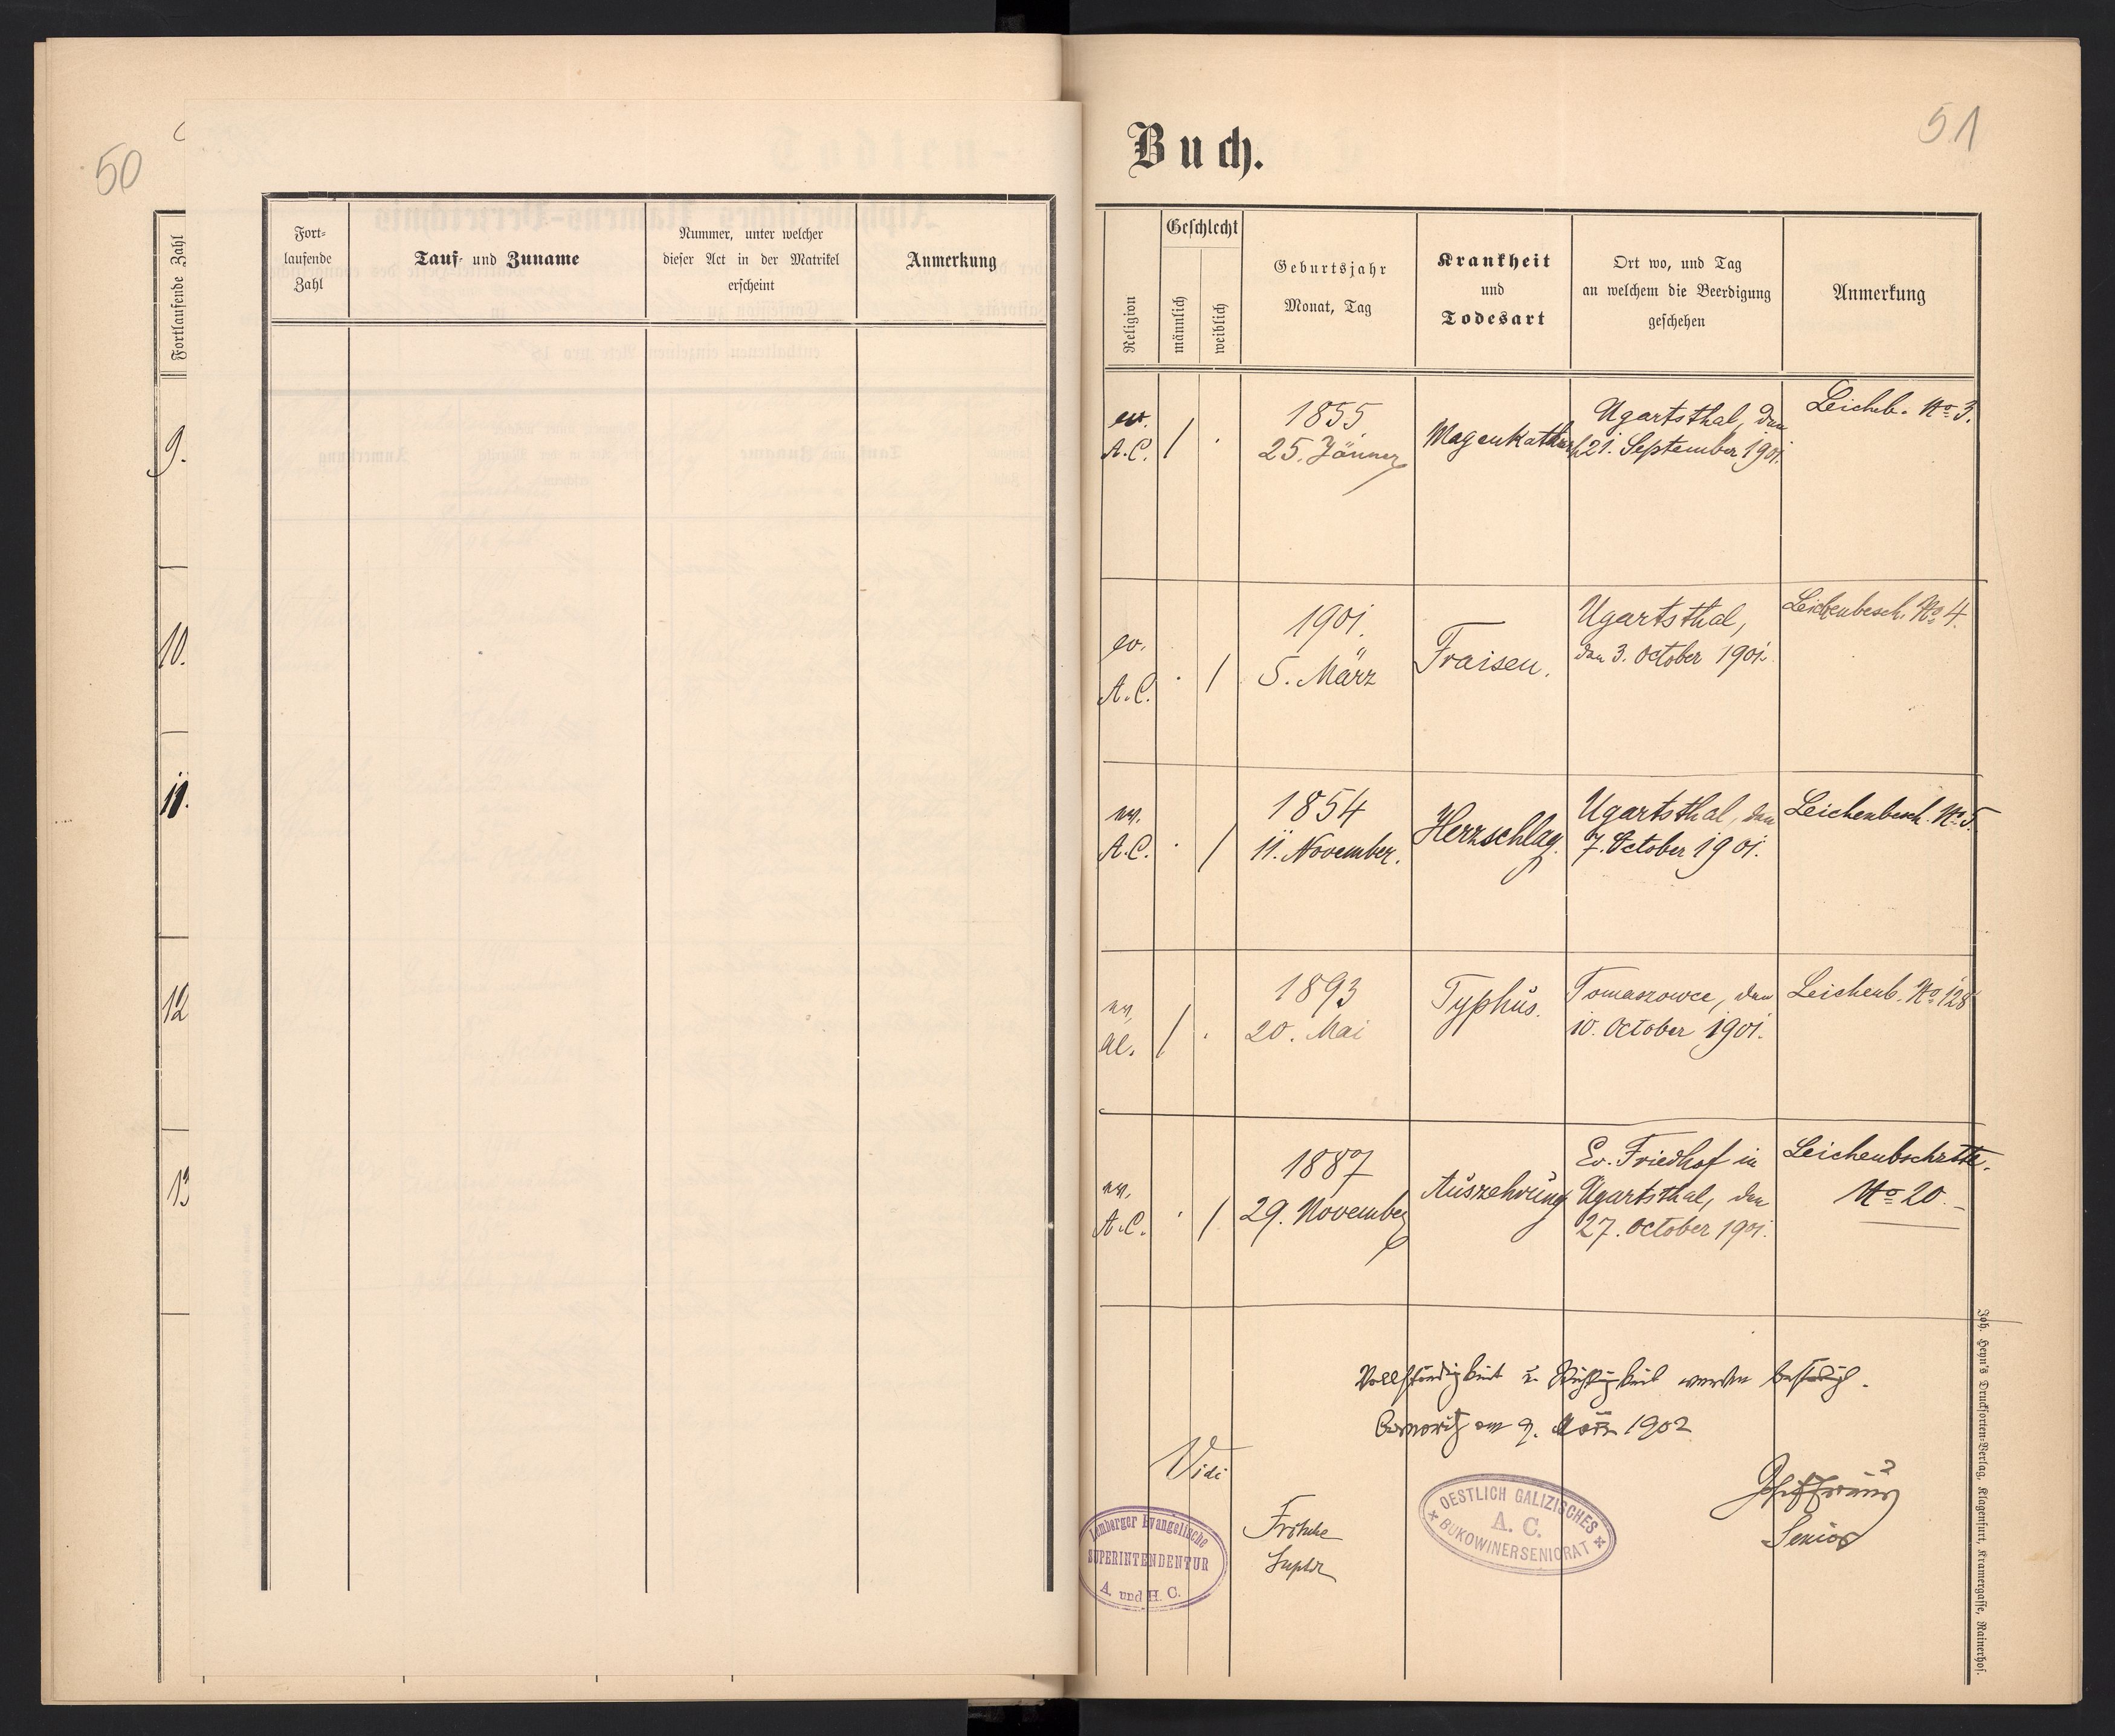 50
51
Buch.
Fortlaufende Zahl
9.
10.
11.
12
13
Fort-
laufende
Zahl
Tauf- und Zuname
Nummer, unter welcher
dieser Act in der Matrikel
erscheint
Anmerkung
Religion
Geschlecht
männlich
weiblich
Geburtsjahr
Monat, Tag
Krankheit
und
Todesart
Ort wo, und Tag
an welchem die Beerdigung
geschehen
Anmerkung
ev.
A.C.
/
.
1855
25. Jänner
Magenkatharh
Ugartsthal, den
21. September 1901.
Leichb. No 3.
ev.
A.C.
.
/
1901.
5. März
Fraisen.
Ugartsthal,
den 3. October 1901.
Leichenbesch. No 4.
ev.
A.C.
.
/
1854
11. November.
Herzschlag.
Ugartsthal, den
7. October 1901.
Leichenbesch. No 5.
ev.
/
.
1893
20. Mai
Typhus.
Tomaszowce, den
10. October 1901.
Leichenb. No 128
ev.
A.C.
.
/
1887
29. November
Auszehrung
Ev. Friedhof in
Ugartsthal, den
27. October 1901.
Leichenbschrtt.
No 20.
Vollständigkeit u. Richtigkeit werden bestätigt.
am 9. März 1902
Vidi
Lemberger Evangelische
SUPERINTENDENTUR
A. und H. C.
Suptdt
OESTLICH GALIZISCHES
A. C.
BUKOWINERSENIORAT
Senior
Joh. Heyn's Drucksorten-Verlag, Klagenfurt, Kramergasse, Rainerhof.